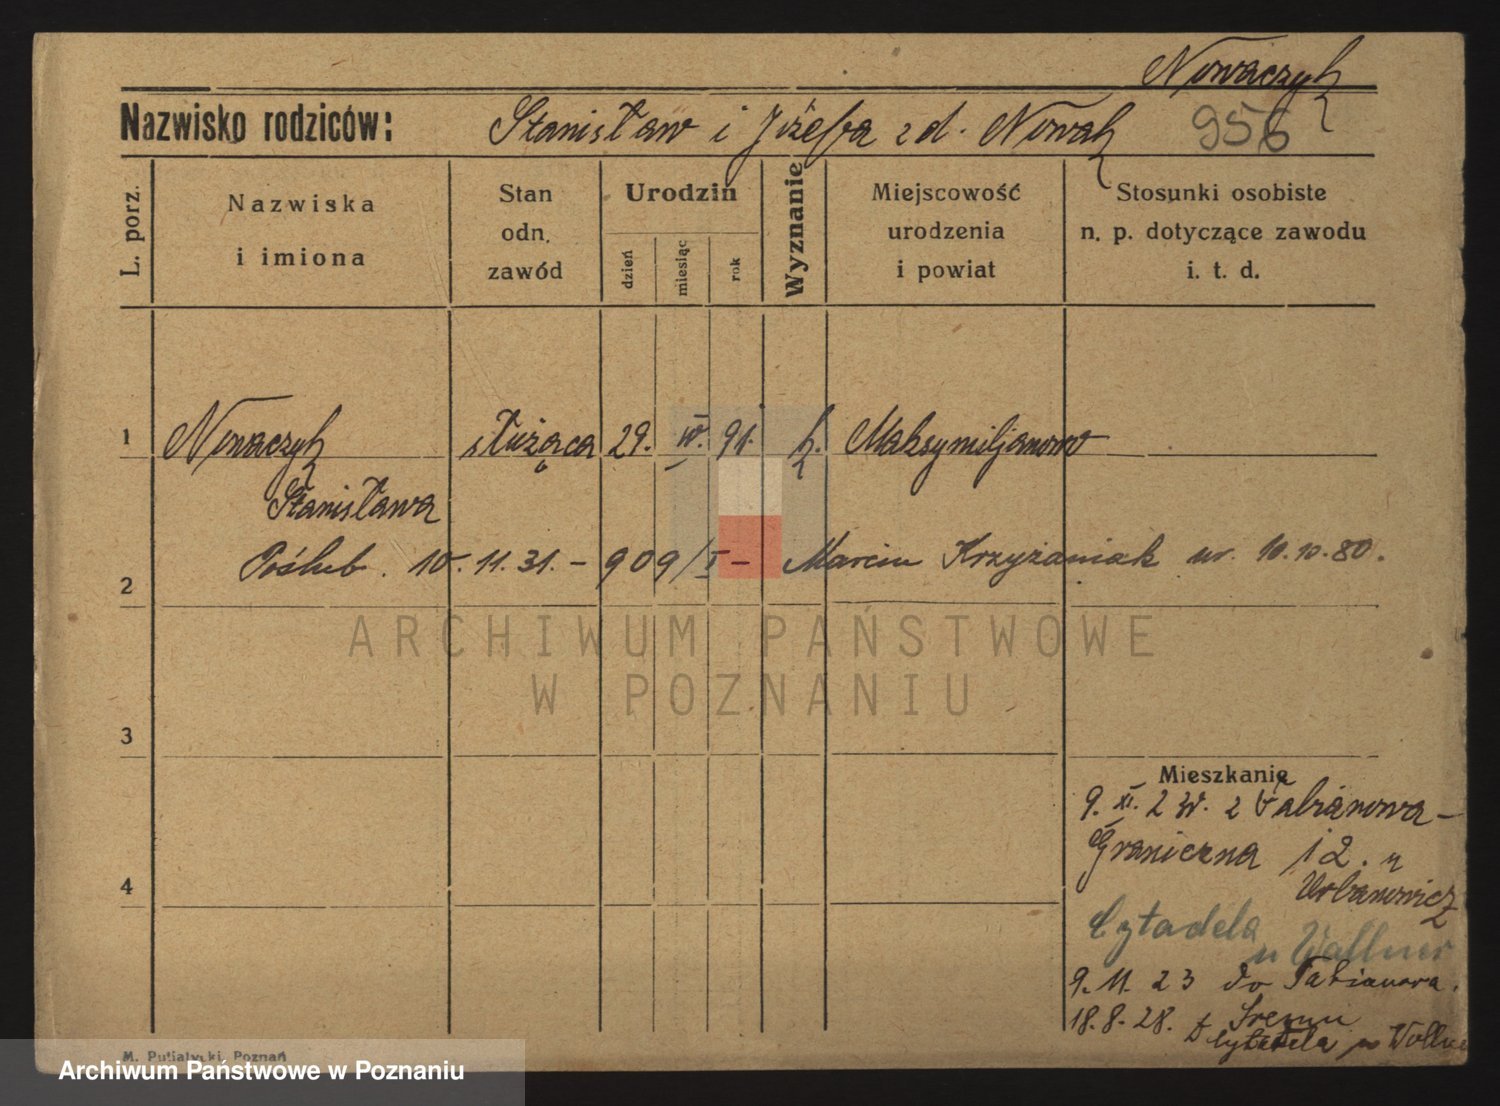 Nowaczyk
Nazwisko rodziców: Stanisław i Józefa z d. Nowak 956
L. porz.
Nazwiska
i imiona
Stan
odn.
zawód
Urodzin
dzień
miesiąc
rok
Wyznanie
Miejscowość
urodzenia
i powiat
Stosunki osobiste
n. p. dotyczące zawodu
i. t. d.
1 Nowaczyk służąca 29. IV. 91. k. Maksymiljanowo
Stanisława
Poślub. 10. 11. 31. – 909/I – Marcin Krzyżaniak ur. 10.10.80.
2
ARCHIWUM PAŃSTWOWE
W POZNANIU
3
Mieszkanie
9. XI. 2 z Fabianowa –
Graniczna 12. u
Urbanowicz
4
Cytadela
u Wallner
9. 11. 23 do Fabianowa.
18. 8. 28. z Śremu
Cytadela u
M. Putiatycki, Poznań
Archiwum Państwowe w Poznaniu